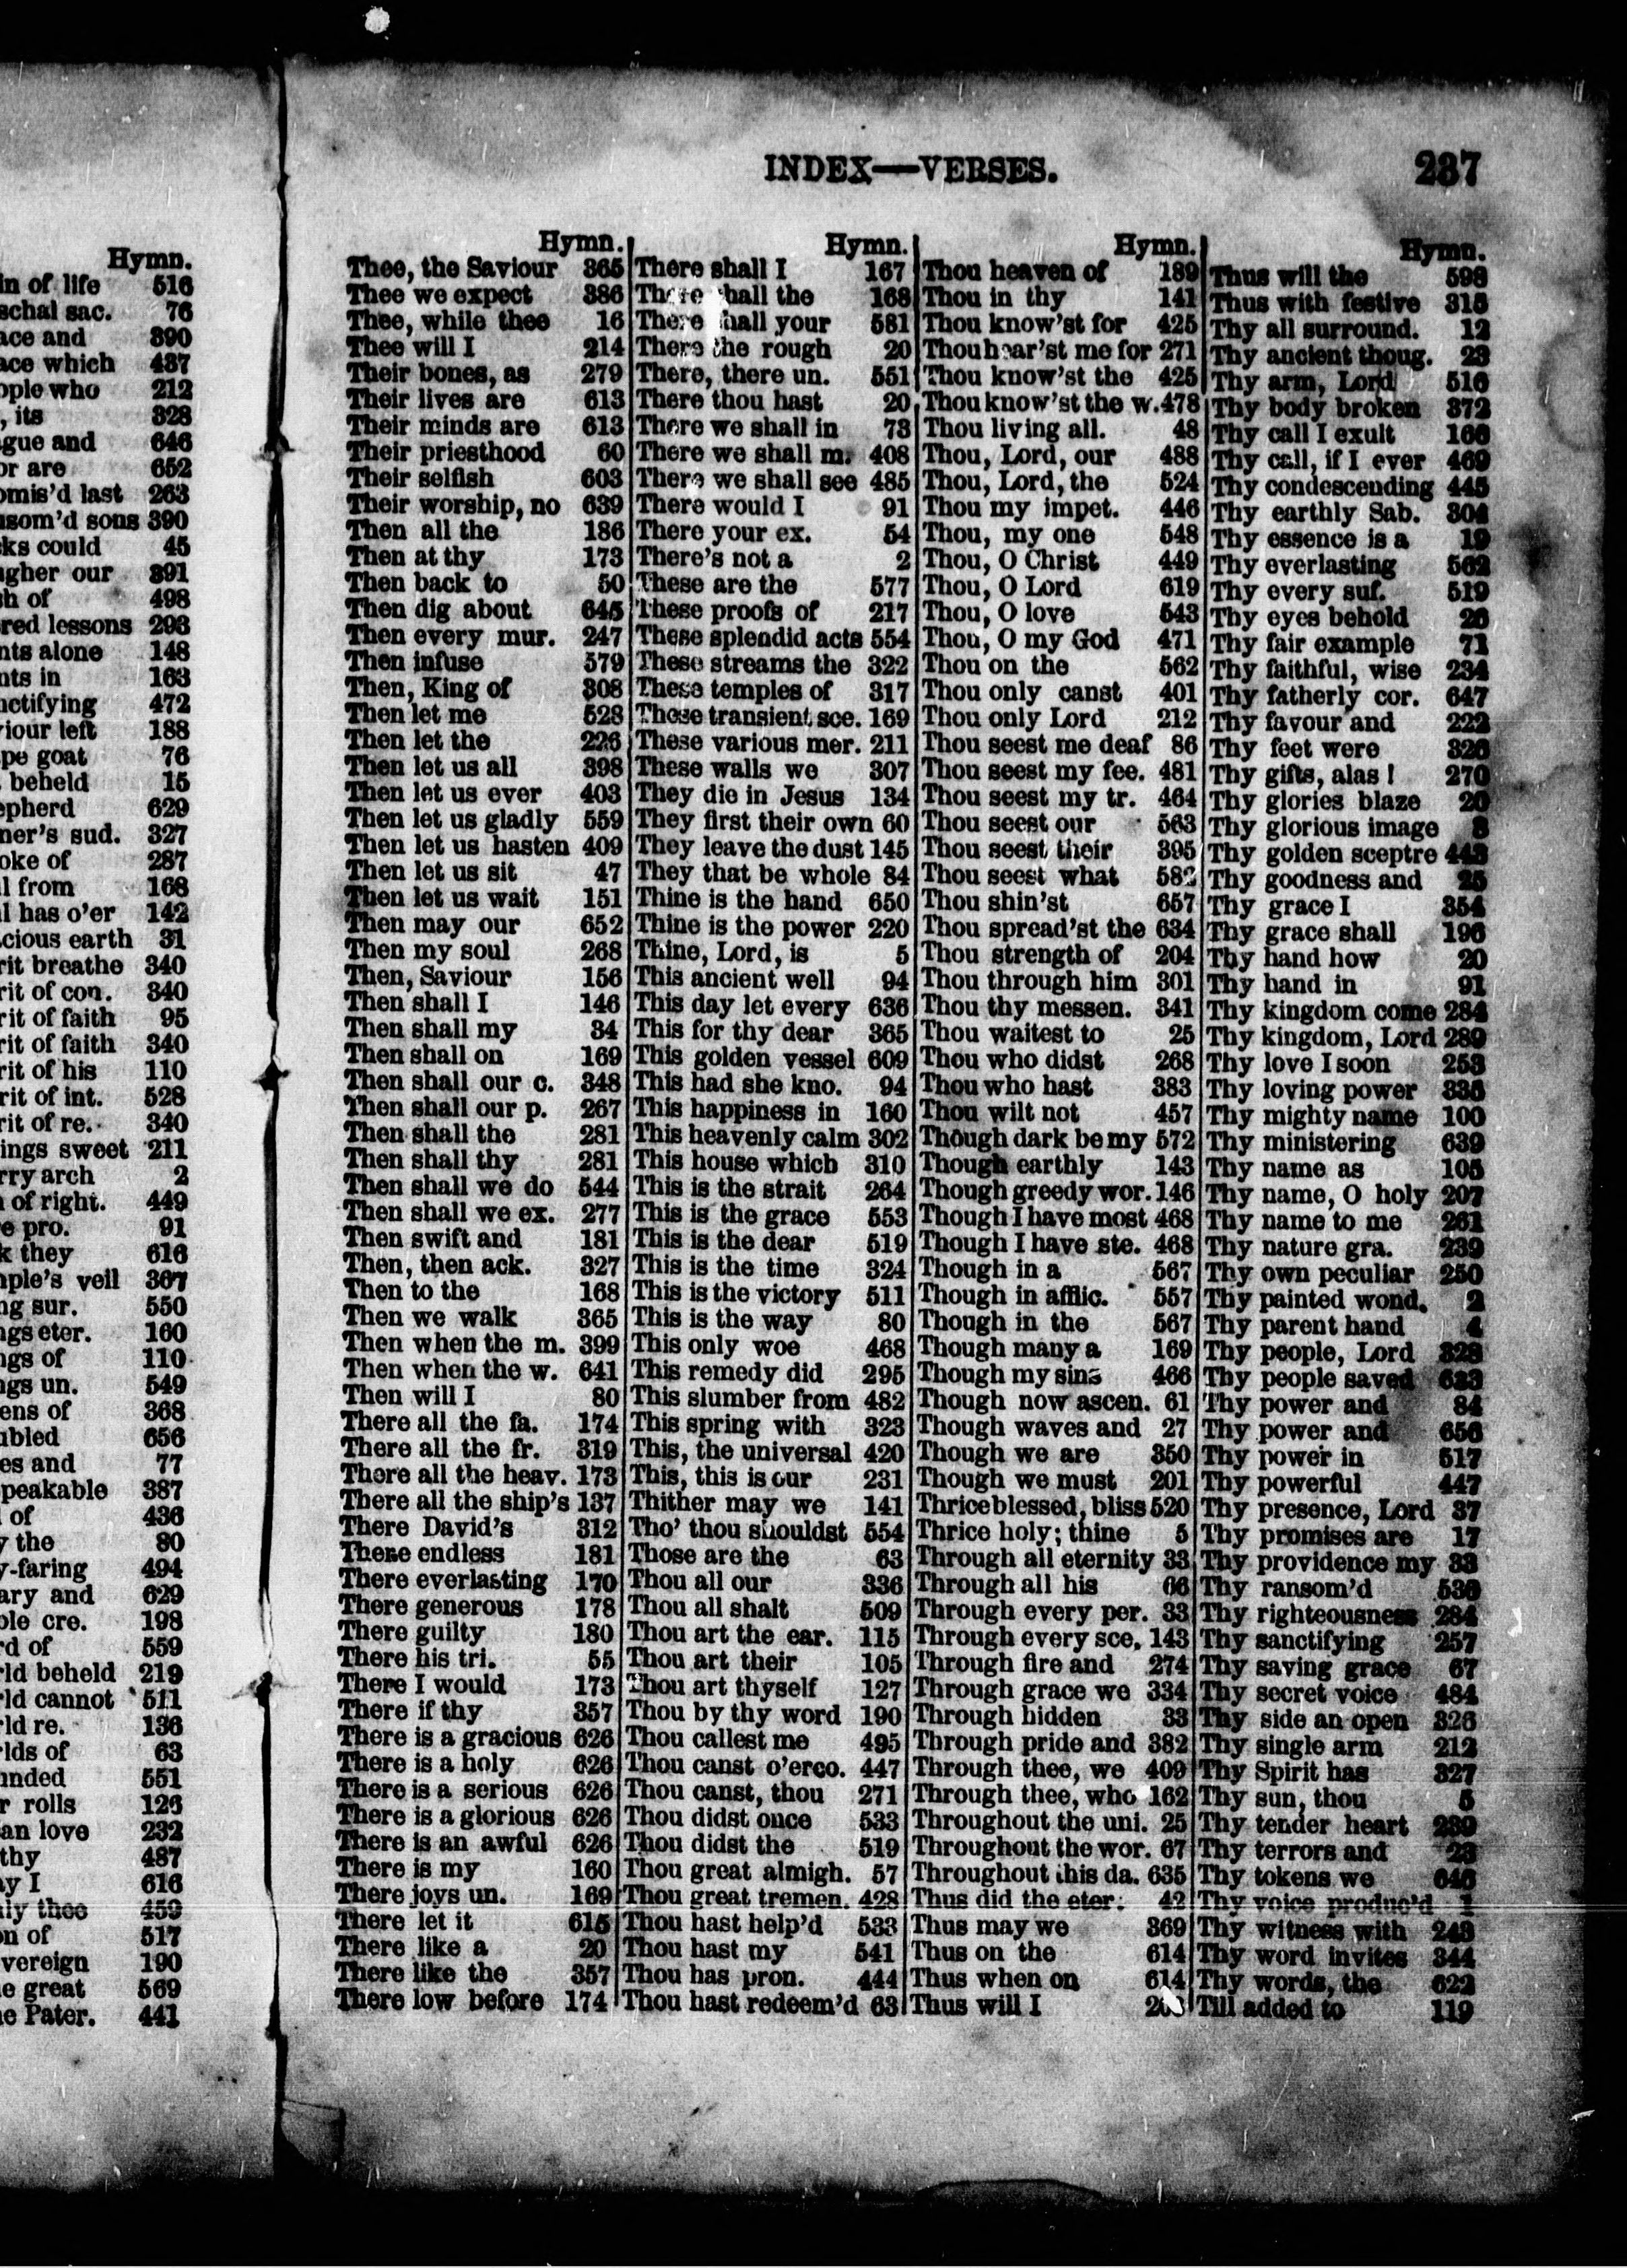 Hymn.
in of life 516
schal sac. 76
ace and 390
ace which 437
ople who 212
, its 328
gue and 646
or are 652
omis'd last 263
nsom'd sons 390
ks could 45
gher our 391
h of 498
red lessons 293
nts alone 148
nts in 163
nctifying 472
iour left 188
pe goat 76
beheld 15
epherd 629
ner's sud. 327
oke of 287
l from 168
l has o'er 142
cious earth 31
rit breathe 340
rit of con. 340
rit of faith 95
rit of faith 340
rit of his 110
rit of int. 528
rit of re. 340
ings sweet 211
rry arch 2
of right. 449
e pro. 91
k they 616
ple's veil 367
ng sur. 550
ngs eter. 160
ngs of 110
ngs un. 549
ens of 368
bled 656
es and 77
peakable 387
of 436
y the 80
y-faring 494
ary and 629
ole cre. 198
d of 559
ld beheld 219
ld cannot 511
ld re. 136
lds of 63
nded 551
r rolls 126
an love 232
thy 487
y I 616
ly thee 459
n of 517
vereign 190
e great 569
e Pater. 441
INDEX—VERSES. 237
Hymn.
Thee, the Saviour 365
Thee we expect 386
Thee, while thee 16
Thee will I 214
Their bones, as 279
Their lives are 613
Their minds are 613
Their priesthood 60
Their selfish 603
Their worship, no 639
Then all the 186
Then at thy 173
Then back to 50
Then dig about 645
Then every mur. 247
Then infuse 579
Then, King of 308
Then let me 528
Then let the 226
Then let us all 398
Then let us ever 403
Then let us gladly 559
Then let us hasten 409
Then let us sit 47
Then let us wait 151
Then may our 652
Then my soul 268
Then, Saviour 156
Then shall I 146
Then shall my 34
Then shall on 169
Then shall our c. 348
Then shall our p. 267
Then shall the 281
Then shall thy 281
Then shall we do 544
Then shall we ex. 277
Then swift and 181
Then, then ack. 327
Then to the 168
Then we walk 365
Then when the m. 399
Then when the w. 641
Then will I 80
There all the fa. 174
There all the fr. 319
There all the heav. 173
There all the ship's 137
There David's 312
There endless 181
There everlasting 170
There generous 178
There guilty 180
There his tri. 55
There I would 173
There if thy 357
There is a gracious 626
There is a holy 626
There is a serious 626
There is a glorious 626
There is an awful 626
There is my 160
There joys un. 169
There let it 615
There like a 20
There like the 357
There low before 174
Hymn.
There shall I 167
There shall the 168
There shall your 581
There the rough 20
There, there un. 551
There thou hast 20
There we shall in 73
There we shall m. 408
There we shall see 485
There would I 91
There your ex. 54
There's not a 2
These are the 577
These proofs of 217
These splendid acts 554
These streams the 322
These temples of 317
These transient sce. 169
These various mer. 211
These walls we 307
They die in Jesus 134
They first their own 60
They leave the dust 145
They that be whole 84
Thine is the hand 650
Thine is the power 220
Thine, Lord, is 5
This ancient well 94
This day let every 636
This for thy dear 365
This golden vessel 609
This had she kno. 94
This happiness in 160
This heavenly calm 302
This house which 310
This is the strait 264
This is the grace 553
This is the dear 519
This is the time 324
This is the victory 511
This is the way 80
This only woe 468
This remedy did 295
This slumber from 482
This spring with 323
This, the universal 420
This, this is our 231
Thither may we 141
Tho' thou shouldst 554
Those are the 63
Thou all our 336
Thou all shalt 509
Thou art the ear. 115
Thou art their 105
Thou art thyself 127
Thou by thy word 190
Thou callest me 495
Thou canst o'erco. 447
Thou canst, thou 271
Thou didst once 533
Thou didst the 519
Thou great almigh. 57
Thou great tremen. 428
Thou hast help'd 533
Thou hast my 541
Thou has pron. 444
Thou hast redeem'd 63
Hymn.
Thou heaven of 189
Thou in thy 141
Thou know'st for 425
Thou hear'st me for 271
Thou know'st the 425
Thou know'st the w. 478
Thou living all. 48
Thou, Lord, our 488
Thou, Lord, the 524
Thou my impet. 446
Thou, my one 548
Thou, O Christ 449
Thou, O Lord 619
Thou, O love 543
Thou, O my God 471
Thou on the 562
Thou only canst 401
Thou only Lord 212
Thou seest me deaf 86
Thou seest my fee. 481
Thou seest my tr. 464
Thou seest our 563
Thou seest their 395
Thou seest what
Thou shin'st 657
Thou spread'st the 634
Thou strength of 204
Thou through him 301
Thou thy messen. 341
Thou waitest to 25
Thou who didst 268
Thou who hast 383
Thou wilt not 457
Though dark be my 572
Though earthly 143
Though greedy wor. 146
Though I have most 468
Though I have ste. 468
Though in a 567
Though in afflic. 557
Though in the 567
Though many a 169
Though my sins 466
Though now ascen. 61
Though waves and 27
Though we are 350
Though we must 201
Thrice blessed, bliss 520
Thrice holy; thine 5
Through all eternity 33
Through all his 66
Through every per. 33
Through every sce. 143
Through fire and 274
Through grace we 334
Through hidden 33
Through pride and 382
Through thee, we 409
Through thee, who 162
Throughout the uni. 25
Throughout the wor. 67
Throughout this da. 635
Thus did the eter. 42
Thus may we 369
Thus on the 614
Thus when on 614
Thus will I
Hymn.
Thus will the 598
Thus with festive 315
Thy all surround. 12
Thy ancient thoug. 23
Thy arm, Lord 516
Thy body broken 372
Thy call I exult 166
Thy call, if I ever 469
Thy condescending 445
Thy earthly Sab. 304
Thy essence is a 19
Thy everlasting 562
Thy every suf. 519
Thy eyes behold 26
Thy fair example 71
Thy faithful, wise 234
Thy fatherly cor. 647
Thy favour and 222
Thy feet were 326
Thy gifts, alas! 270
Thy glories blaze 20
Thy glorious image 8
Thy golden sceptre 443
Thy goodness and 25
Thy grace I 354
Thy grace shall 196
Thy hand how 20
Thy hand in 91
Thy kingdom come 284
Thy kingdom, Lord 289
Thy love I soon 253
Thy loving power 335
Thy mighty name 100
Thy ministering 639
Thy name as 105
Thy name, O holy 207
Thy name to me 261
Thy nature gra. 239
Thy own peculiar 250
Thy painted wond. 2
Thy parent hand 4
Thy people, Lord 328
Thy people saved 623
Thy power and 84
Thy power and 656
Thy power in 517
Thy powerful 447
Thy presence, Lord 37
Thy promises are 17
Thy providence my 33
Thy ransom'd 536
Thy righteousness 284
Thy sanctifying 257
Thy saving grace 67
Thy secret voice 484
Thy side an open 326
Thy single arm 212
Thy Spirit has 327
Thy sun, thou 5
Thy tender heart 239
Thy terrors and 23
Thy tokens we 646
Thy voice produc'd 1
Thy witness with 243
Thy word invites 344
Thy words, the 622
Till added to 119